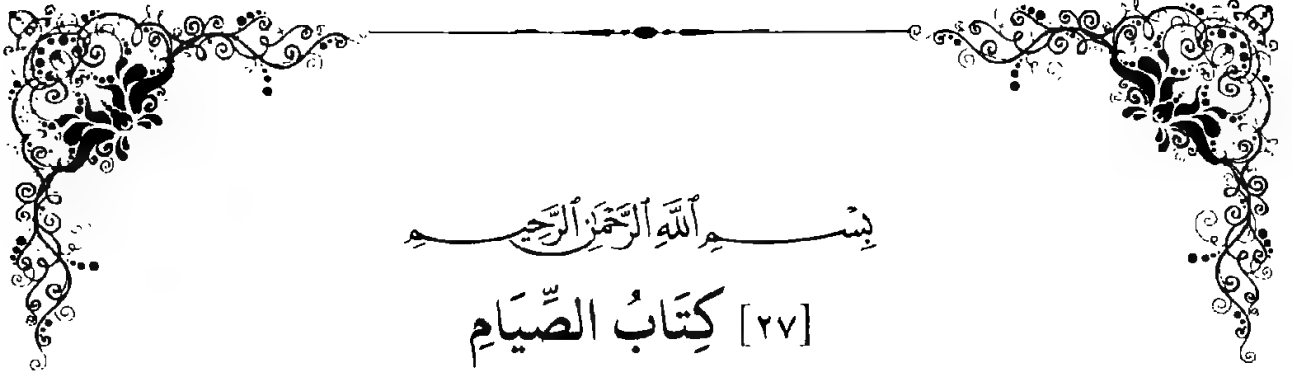 بِسْمِ ٱللَّهِ ٱلرَّحْمَٰنِ ٱلرَّحِيمِ
[٢٧] كِتَابُ الصِّيَامِ